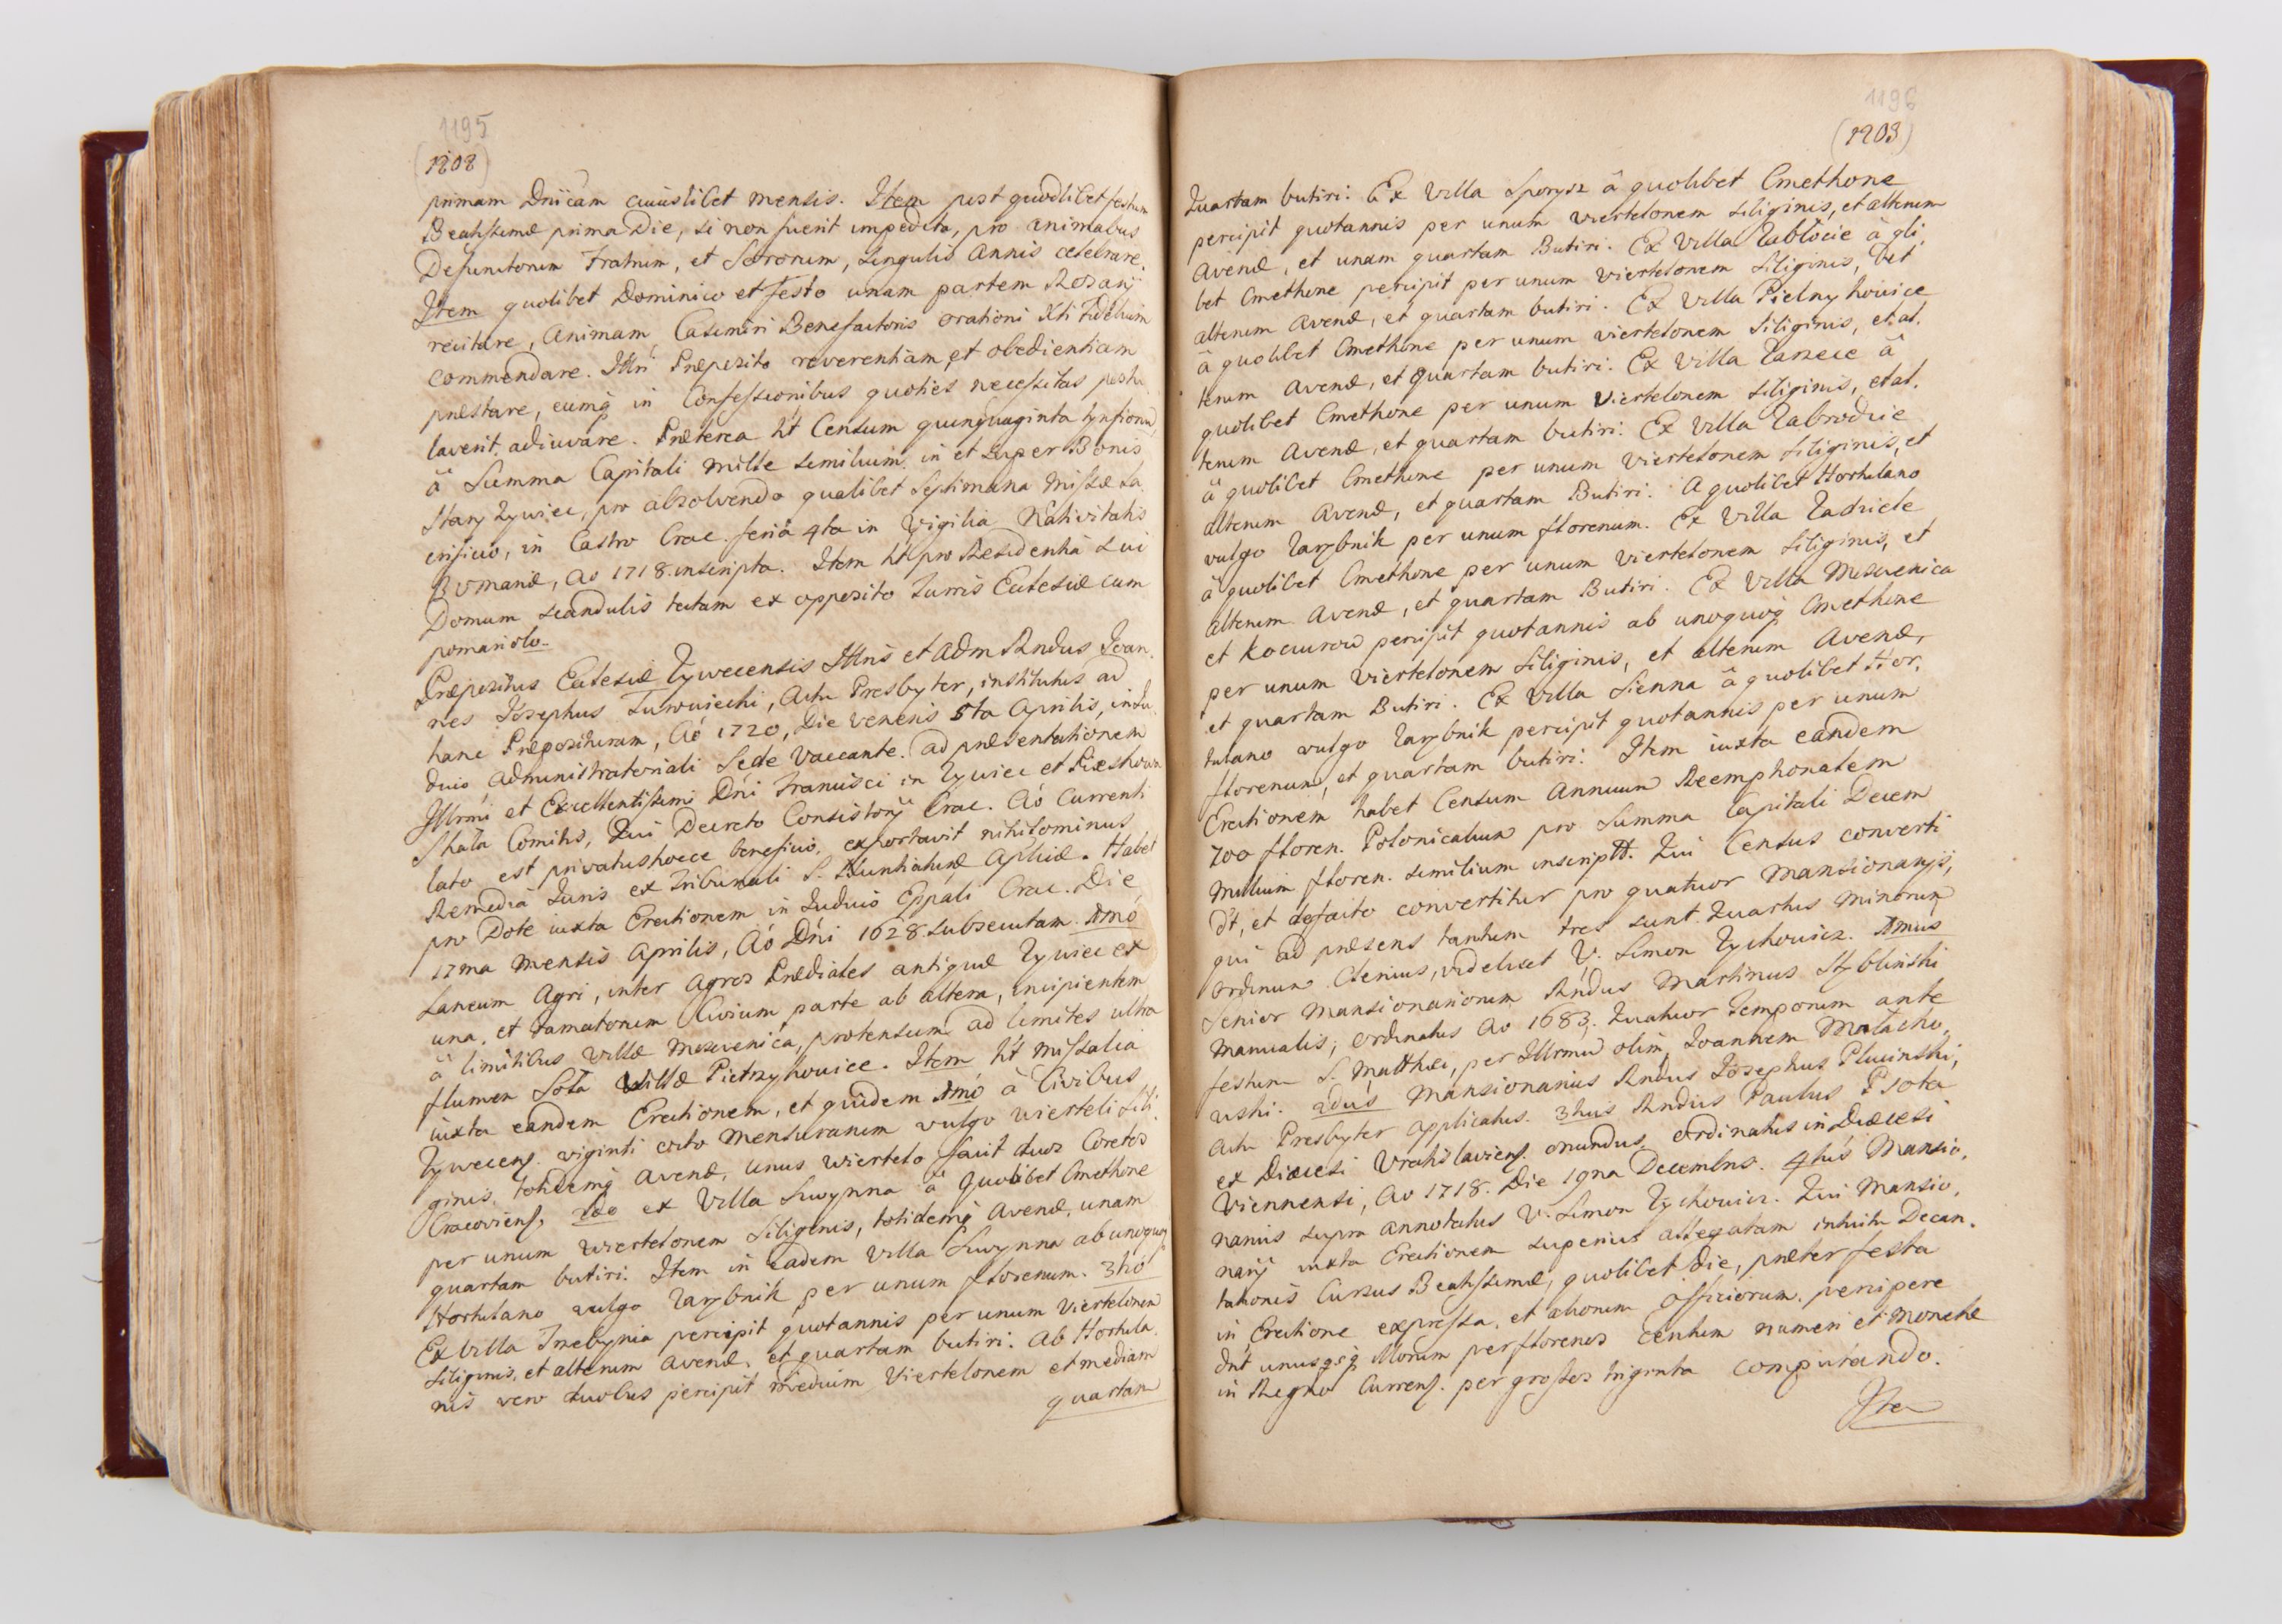 1195
(1202)
primam Dnicam cuiuslibet mensis. Item post quodlibet festum
Beatissimæ prima Die, si non fuerit impedita, pro animabus
Defunctorum Fratrum, et Sororum, singulis annis celebrare.
Item quolibet Dominico et festo unam partem Rosarij
recitare, animam Casimiri Benefactoris orationi Xti Fidelium
commendare. Illri Præposito reverentiam, et obedientiam
præstare, eumq̃ in Confessionibus quoties necessitas postu
laverit adiuvare. Præterea ht Censum quinquaginta tynforum,
à Summa Capitali mille similium, in et super Bonis
Stary Zywiec, pro absolvendo qualibet Septimana Missæ Sa
crificio, in Castro Crac. feria 4ta in Vigilia Nativitatis
Romanæ, Ao 1718. inscripta. Item ht pro Residentia sui
Domum scandulis tectam ex opposito Turris Ecclesiæ cum
pomariolo.
Præpositus Ecclesiæ Zywecensis Illris et Adm Rndus Joan
nes Josephus, Actu Presbyter, institutus ad
hanc Præposituram, Aó 1720, Die veneris 5ta Aprilis, in Ju
dicio Administratoriali Sede Vaccante. ad præsentationem
Illrmi et Excellentissimi Dńi Francisci in Zywiec et Pieskowa
Skała Comitis, Qui Decreto Consistorij Crac. Aó Currenti
lato est privatus hocce beneficio, exportavit nihilominus
Remedia Juris ex Tribunali S. Nuntiaturæ Aplicæ. Habet
pro Dote iuxta Erectionem in Judicio Eppali Crac. Die
17ma Mensis Aprilis, Aó Dńi 1628. subsecutam. Imó
Laneum Agri, inter Agros Prædiales antiquæ Zywiec ex
una, et Civium parte ab altera, incipientem
à limitibus Villæ Moszczenica, protensum ad limites ultra
flumen Soła Villæ Pietrzykowice. Item ht Missalia
iuxta eandem Erectionem, et quidem Imó à Civibus
Zywecens. viginti octo Mensurarum vulgo wierteli Sili
ginis, totidemq̃ avenæ, unus wiertelo facit duos Coretos
Cracoviens. 2do ex Villa Swynna à quolibet Cmethone
per unum wiertelonem Siliginis, totidemq̃ Avenæ, unam
quartam butiri. Item in eadem Villa Swynna ab unoquoq̃
Hortulano vulgo Zarybnik per unum florenum. 3tio
Ex Villa Trzebynia percipit quotannis per unum Viertelonem
Siliginis, et alterum avenæ, et quartam butiri. Ab Hortula
nis vero duobus percipit medium Viertelonem et mediam
quartam
1196
(1203)
Quartam butiri. Ex Villa Sporysz à quolibet Cmethone
percipit quotannis per unum viertelonem siliginis, et alterum
avenæ, et unam quartam Butiri. Ex Villa Zabłocie à qli
bet Cmethone percipit per unum viertelonem siliginis, bet
alterum avenæ, et quartam butiri. Ex Villa Pietrzykowice
à quolibet Cmethone per unum viertelonem Siliginis, et al
terum avenæ, et quartam butiri. Ex Villa Zarzece à
quolibet Cmethone per unum Viertelonem siliginis, et al
terum Avenæ, et quartam butiri. Ex Villa Zabrodzie
à quolibet Cmethone per unum viertelonem siliginis, et
alterum avenæ, et quartam Butiri. A quolibet Hortulano
vulgo Zarybnik per unum florenum. Ex Villa Zadziele
à quolibet Cmethone per unum viertelonem siliginis, et
alterum avenæ, et quartam Butiri. Ex Villa Moszczenica
et Kocurow percipit quotannis ab unoquoq̃ Cmethone
per unum Viertelonem siliginis, et alterum avenæ,
et quartam Butiri. Ex Villa Sienna à quolibet Hor
tulano vulgo Zarybnik percipit quotannis per unum
florenum, et quartam butiri. Item iuxta eandem
Erectionem habet Censum Annuum Reemptionalem
700 floren. Polonicalium pro Summa Capitali Decem
Millium floren. similium inscriptt. Qui Census converti
dt, et defacto convertitur pro quatuor Mansionarijs,
qui ad præsens tantum tres sunt. Quartus Minorum
Ordinum Clericus, videlicet V. Simon Zychowicz. Imus
Senior Mansionariorum Rndus Martinus Styblinski
Manualis, ordinatus Ao 1683. Quatuor Temporum ante
festum S. Matthæi, per Illrmu olim Joannem Małacho
wski. 2dus Mansionarius Rndus Josephus Plucinski,
Actu Presbyter applicatus. 3tius Rndus Paulus Psota
ex Diæcesi Vratislaviens. oriundus, ordinatus in Diæcesi
Viennensi, Ao 1718. Die 19na Decembris. 4tus Mansio
narius supra annotatus V. Simon Zychowicz. Qui Mansio
narij iuxta Erectionem superius allegatam intuitu Decan
tationis Cursus Beatissimæ, quolibet die, præter festa
in Erectione expressa, et aliorum officiorum, percipere
dnt unusqsq̃ illorum per florenos centum numeri et monetæ
in Regno Currens. per grossos triginta computando.
Ite